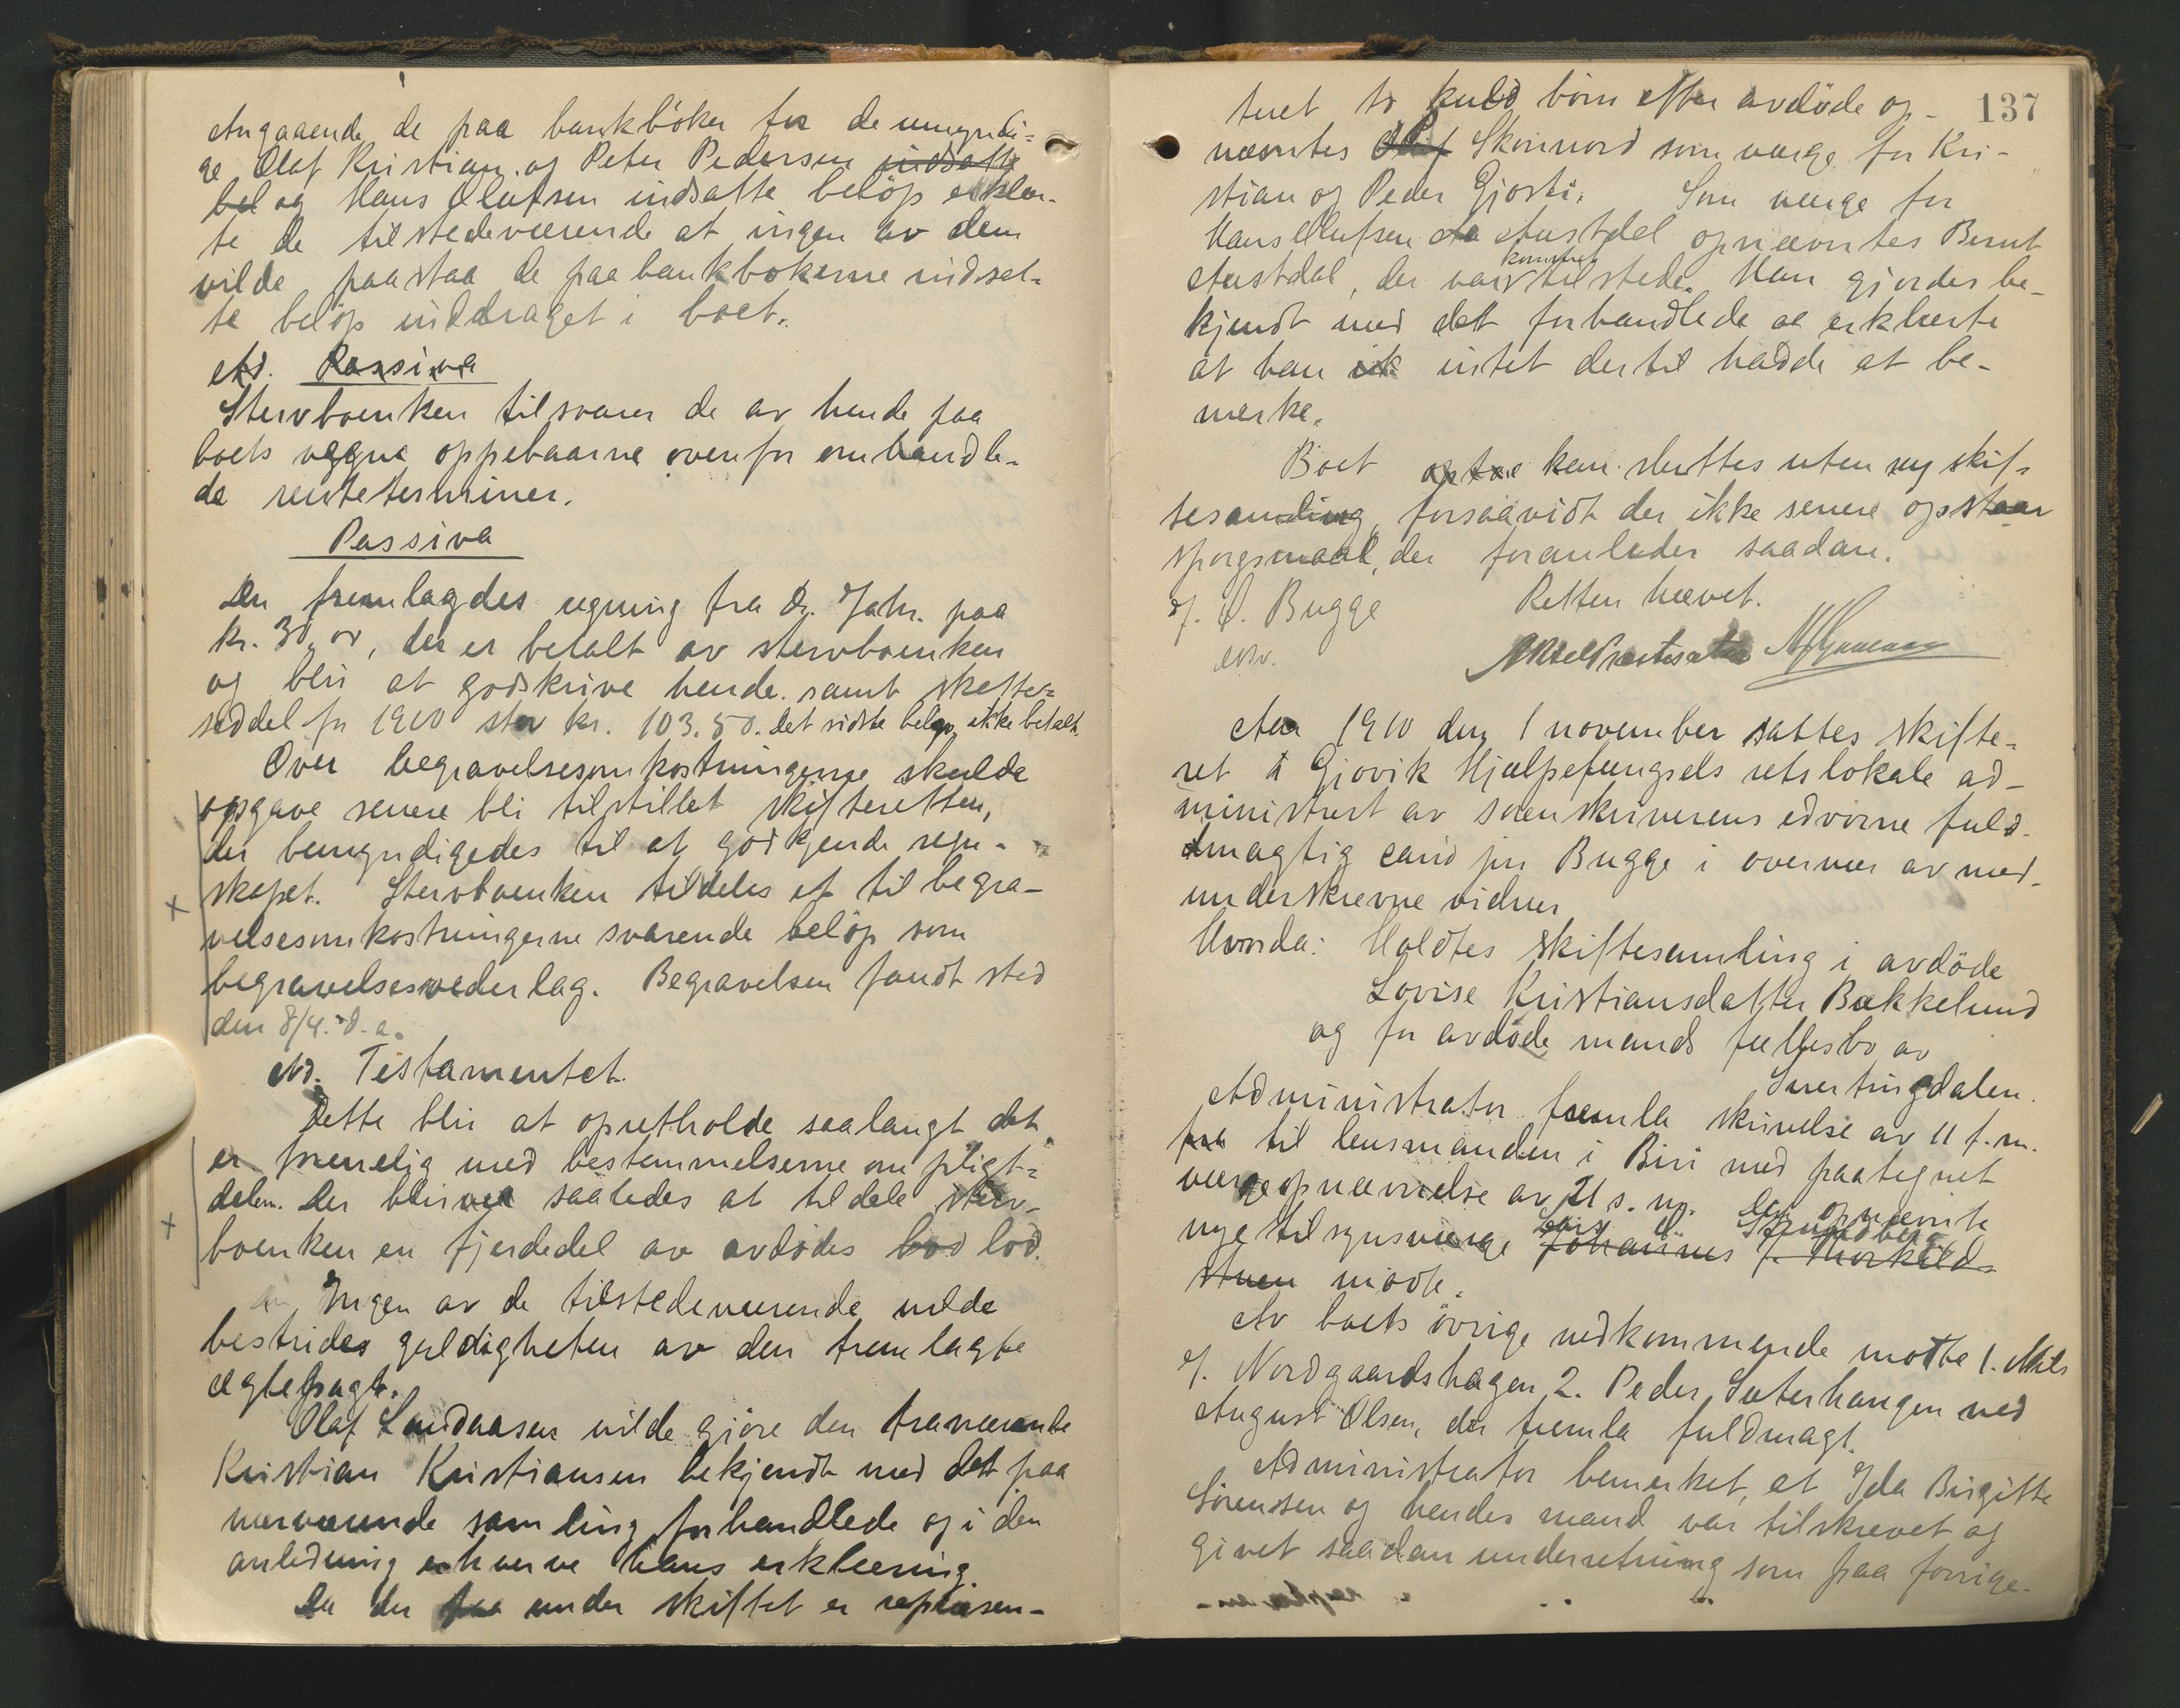 Angaaende de paa bankbøker for de umyndi=
ge Olaf Kristian. og Peter Pedersen indsatte
bel og Hans Olafsen indsatte beløp erklær-
te de tilstedeværende at ingen av dem
vilde paastaa de paa bankbøkerne indsat-
te beløp inddraget i boet.
Ad. Passiva
Stervboenken tilsvarer de av hende paa
boets vegne oppebaarne ovenfor omhandle-
de renteterminer.
Passiva
Der fremlagdes regning fra Dr. Jahr. paa
kr. 30,00, der er betalt av stervboenken
og blir at godskrive hende. samt skatte=
seddel for 1910 stor kr. 103.50. det sidste beløp ikke betalt.
Over begravelsesomkostningerne skulde
opgave senere bli tilstillet skifteretten,
der bemyndigedes til at godkjende regn-
skapet. Stervboenken tildeles et til begra-
velsesomkostningerne svarende beløp som
begravelsesvederlag. Begravelsen fandt sted
den 8/4. d. a.
Ad. Testamentet.
Dette blir at opretholde saalangt det
er forenelig med bestemmelserne om pligt-
delen. Der blir saaledes at tildele sterv-
boenken en fjerdedel av avdødes bod lod.
Ingen av de tilstedeværende vilde
bestrides gyldigheten av den fremlagte
egtepagt.
Olaf Landaasen vilde gjøre den fraværende
Kristian Kristiansen bekjendt med det paa
nærværende samling forhandlede og i den
anledning erhverve hans erklæring.
Da der paa under skiftet er repræsen-
137
tert to kuld børn efter avdøde op-
nævntes Olaf Skonnord som værge for Kri-
stian og Peder Gjøsti. Som værge for
Hans Olufsen Austdal opnævntes Bernt
kommet
Austdal, der var tilstede. Han gjordes be-
kjendt med det forhandlede og erklærte
at han ik intet dertil hadde at be-
merke.
Boet kan sluttes uten ny skif-
tesamling, forsaavidt der ikke senere opstaar
spørgsmaal, der foranleder saadan.
Retten hævet.
J. O. Bugge
edsv.
Aar 1910 den 1 november sattes skifte-
ret i Gjøvik Hjælpefængsels retslokale ad-
ministrert av sorenskriverens edsvorne fuld-
mægtig cand jur Bugge i overvær av med-
underskrevne vidner
Hvorda: Holdtes skiftesamling i avdøde
Lovise Kristiansdatter Bakkelund
og før avdøde mands fællesbo av
Snertingdalen.
Administrator fremla skrivelse av 11 f. m.
fra til lensmanden i Biri med paategnet
værgeopnævnelse av 21 s. m. Den opnævnte
Strandberg
nye tilsynsværge Johannes
stuen møtte.
Av boets øvrige vedkommende møtte 1. Nils
J. Nordgaardshagen 2. Peder Sæterhaugen ved
August Olsen, der fremla fuldmagt.
Administrator bemerket, at Ida Birgitte
Sørensen og hendes mand var tilskrevet og
givet saadan underretning som paa forrige